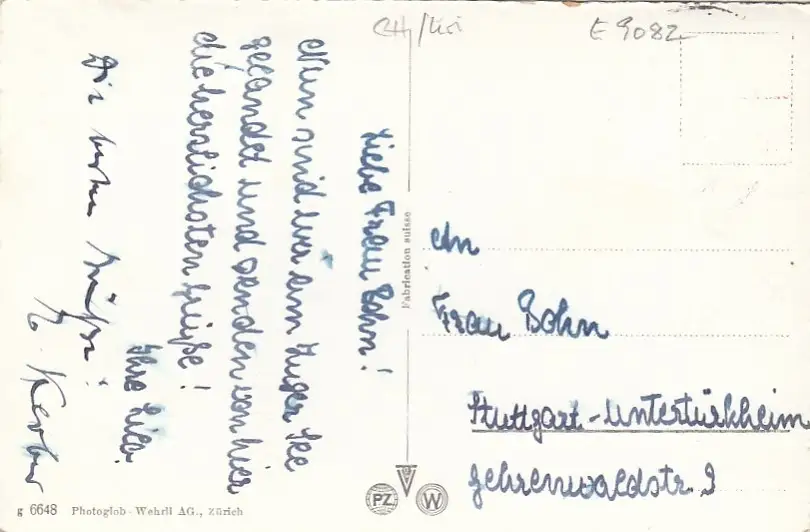 Liebe Frau Bohn!
Nun sind wir am Zuger See
gelandet und senden von hier
die herzlichsten Grüße!
Ihre
Die besten Grüße!
CH/
E 9082
An
Frau Bohn
Stuttgart-Untertürkheim
Gehrenwaldstr. 9
Fabrication suisse
PZ
W
g 6648 Photoglob-Wehrli AG., Zürich